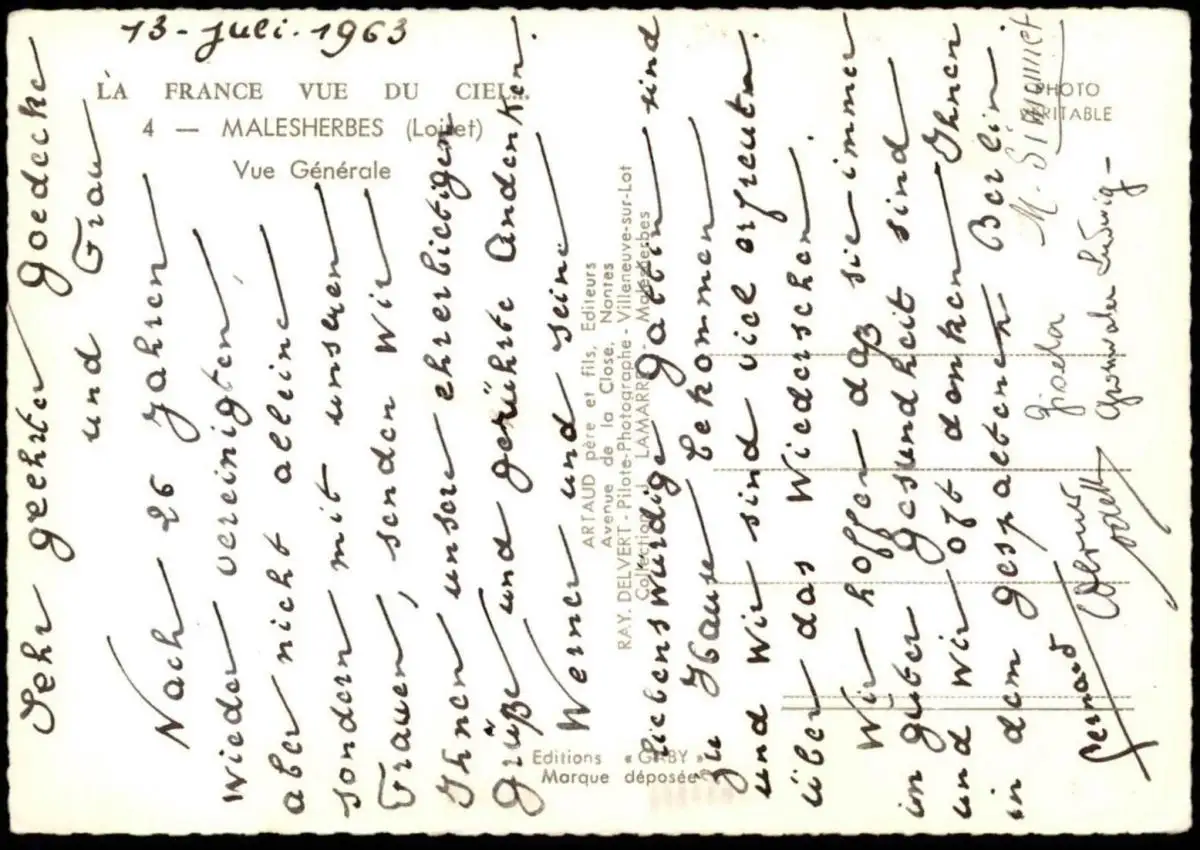 13-Juli.1963
LA FRANCE VUE DU CIEL...
4 — MALESHERBES (Loiret)
Vue Générale
PHOTO
VÉRITABLE
Sehr geehrter Goedecke
und Frau
Nach 26 Jahren
wieder vereinigten,
aber nicht alleine
sondern mit unseren
Frauen, senden wir
Ihnen unsere ehrerbietigen
Grüße und gerührte Andenken.
Werner und seine
liebenswürdige Gattin sind
zu Hause bekommen
und wir sind viel erfreuten
über das Wiedersehen.
Wir hoffen daß sie immer
in guter Gesundheit sind
und wir oft danken Ihnen
in dem gespaltenen Berlin.
M. Simonnet
Gisela
Ludwig-
Werner
Odett
Bernard
ARTAUD père et fils, Editeurs
Avenue de la Close, Nantes
RAY. DELVERT - Pilote-Photographe - Villeneuve-sur-Lot
Collection J. LAMARRE - Malesherbes
Editions « GABY »
Marque déposée